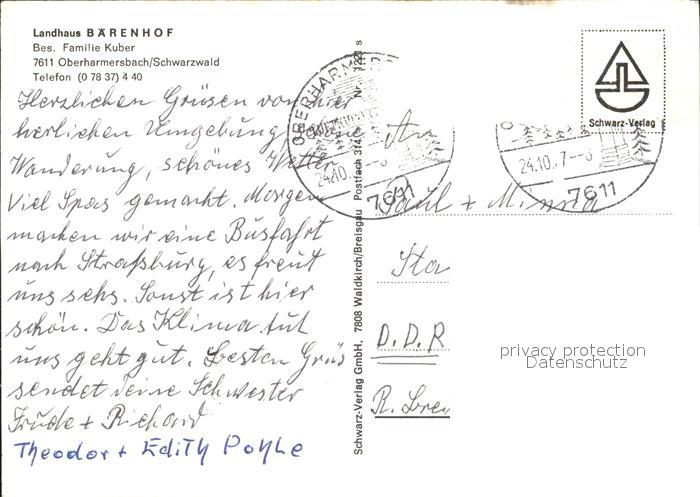 Landhaus BÄRENHOF
Bes. Familie Kuber
7611 Oberharmersbach/Schwarzwald
Telefon (0 78 37) 4 40
Herzlichen Grüsen von hier
herlichen Umgebung,
Wanderung, schönes Wetter
Viel Spas gemacht. Morgen
machen wir eine Busfahrt
nach Straßburg, es freut
uns sehs. Sonst ist hier
schön. Das Klima tut
uns geht gut. Besten Grüs
sendet deine Schwester
Trude + Richard
Theodor + Edith Pohle
Schwarz-Verlag GmbH, 7808 Waldkirch/Breisgau Postfach 314 Nr. 1221 s
OBERHARM
24.10.
7611
Schwarz-Verlag
24.10. 7--8
7611
An
Paul + Minna
Sta
D.D.R
R. Bre
privacy protection
Datenschutz